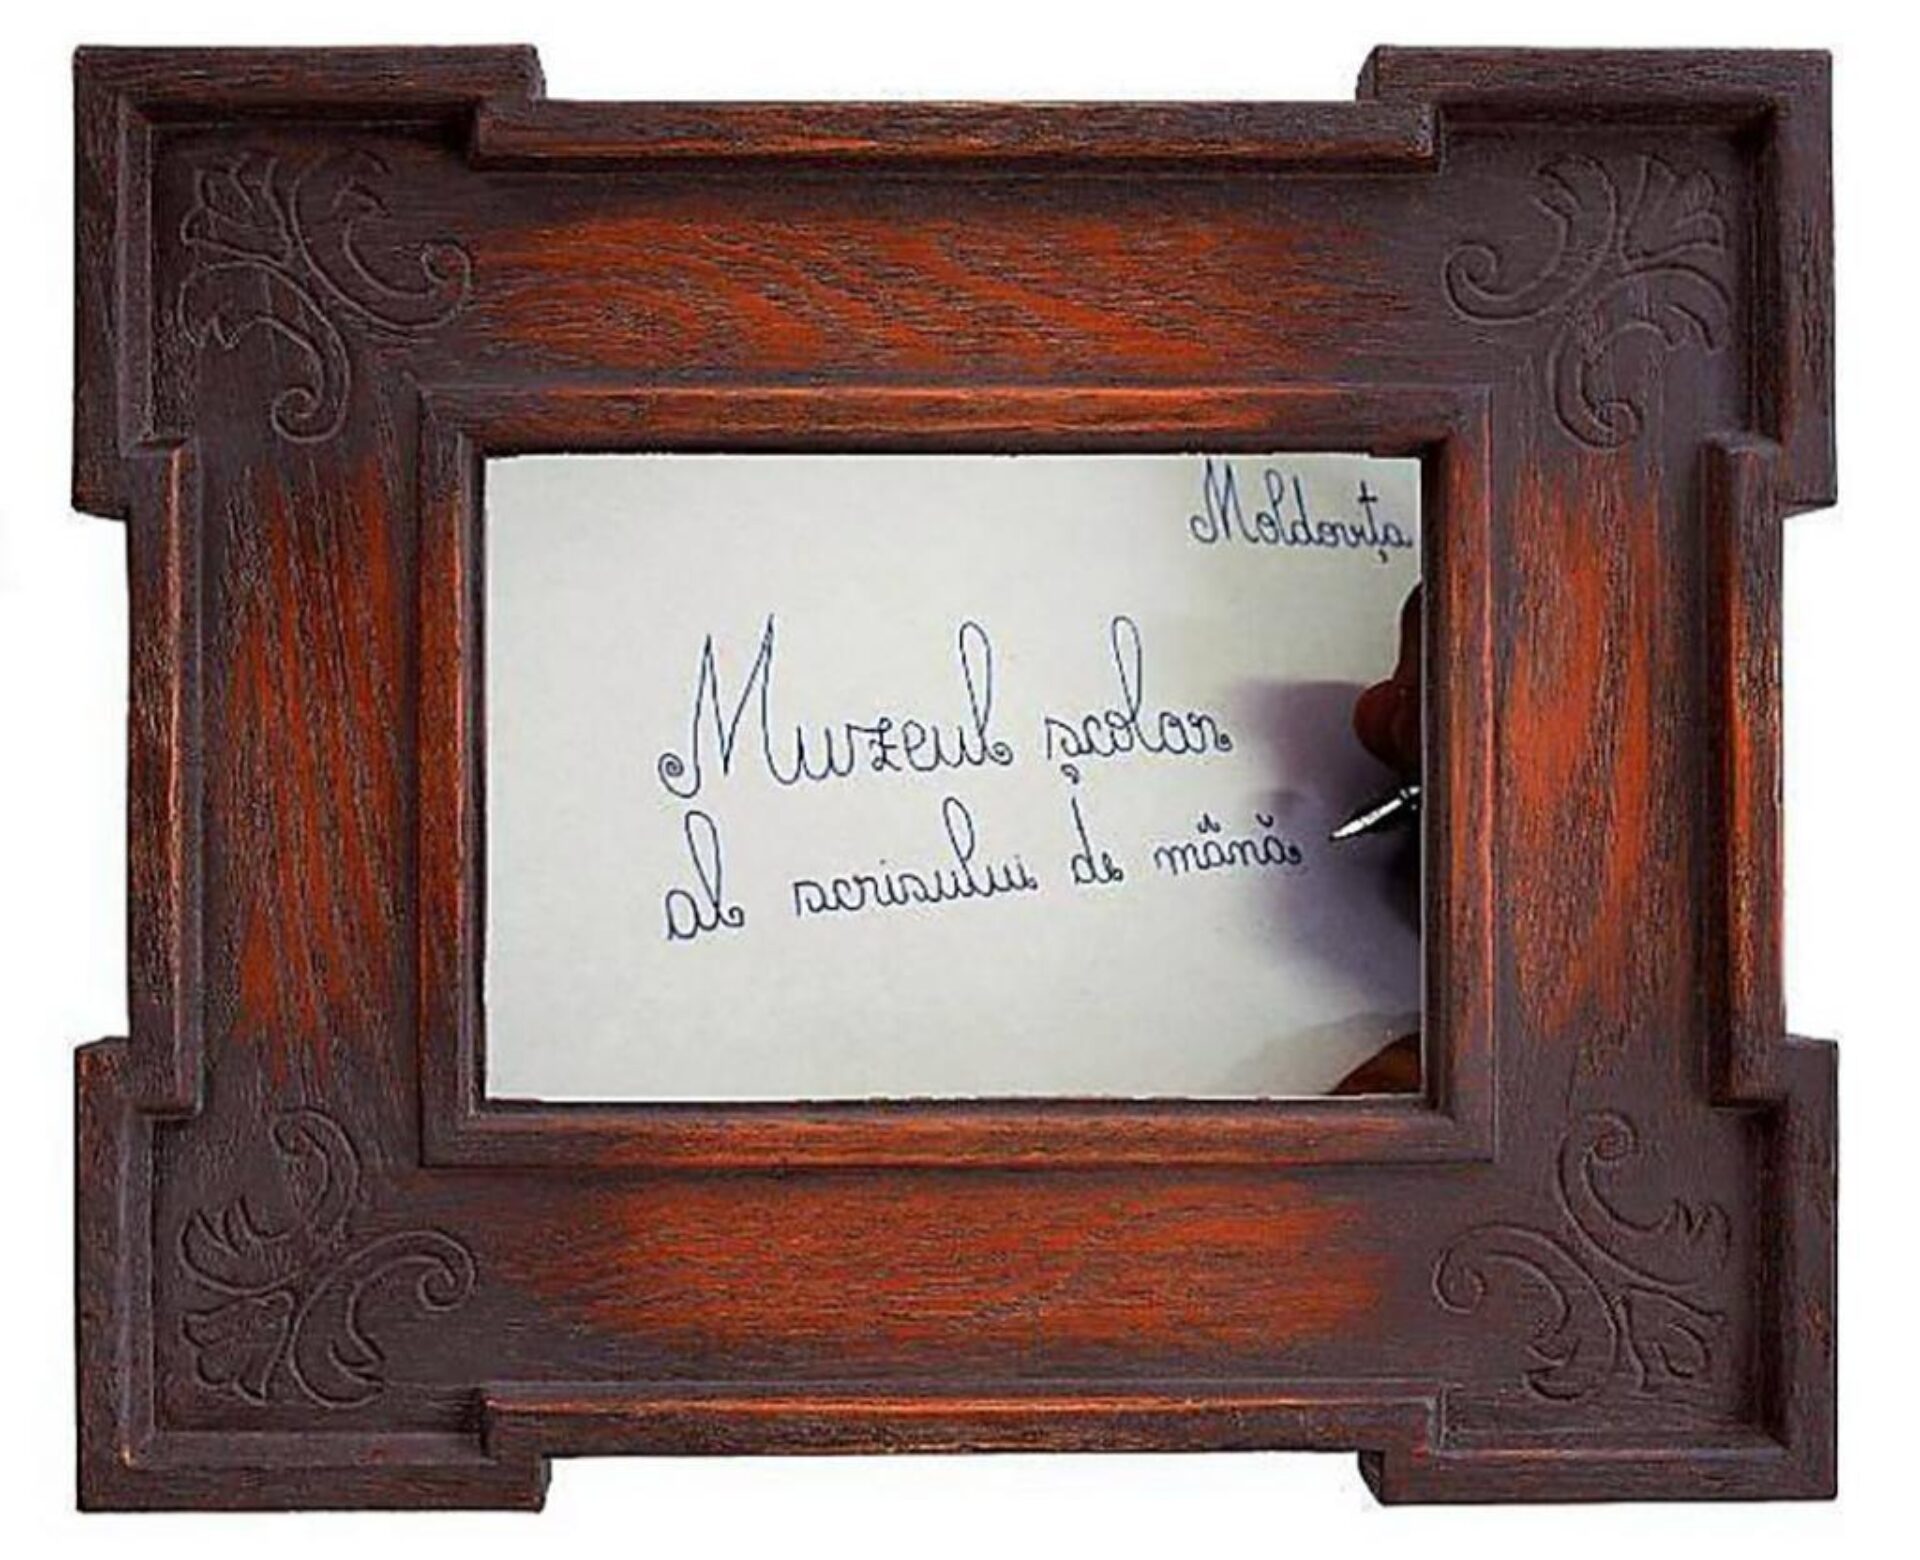 Moldovița
Muzeul școlar
al scrisului de mână